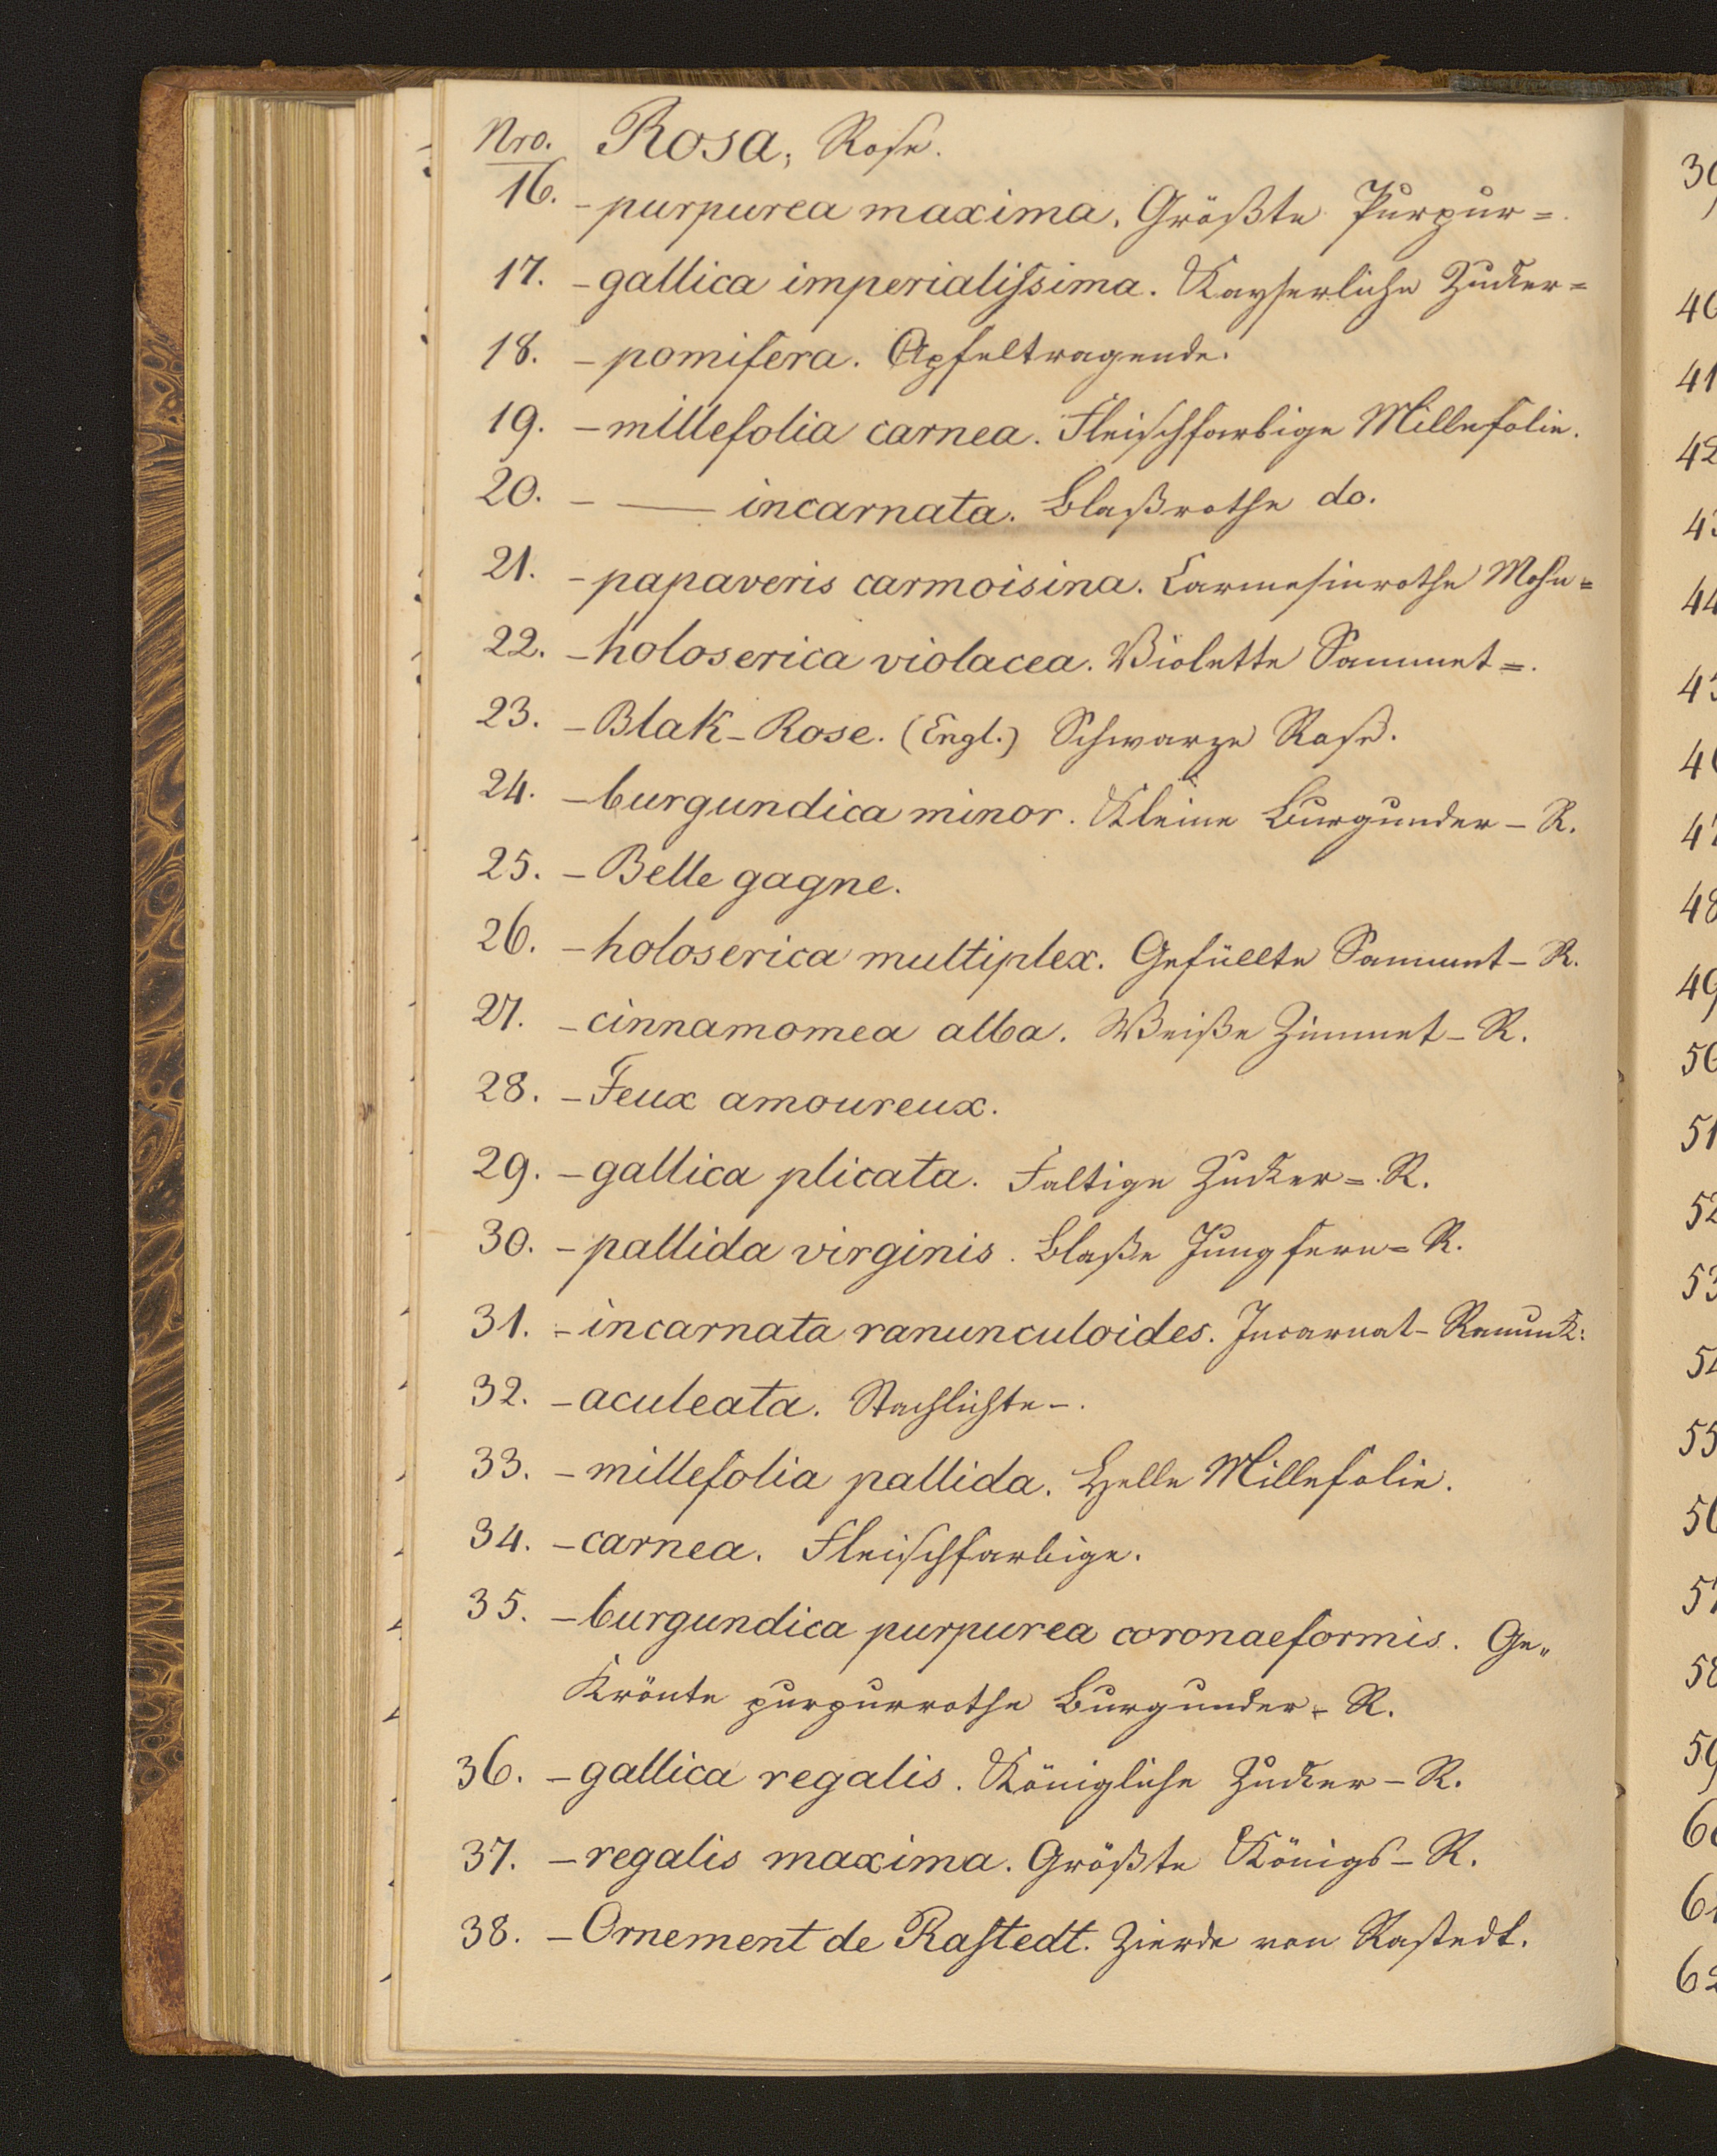 Nro. Rosa, Rose.
16. - purpurea maxima. Größte Purpur=.
17. - gallica imperialiſsima. Kayserliche Zucker=
18. - pomifera. Apfeltragende.
19. - millefolia carnea. Fleischfarbige Millefolie.
20. - — incarnata. Blaßrothe do.
21. - papaveris carmoisina. Carmesinrothe Mohn=
22. - holoserica violacea. Violette Sammet=.
23. - Blak-Rose. (Engl.) Schwarze Rose.
24. - burgundica minor. Kleine Burgunder-R.
25. - Belle gagne.
26. - holoserica multiplex. Gefüllte Sammet-R.
27. - cinnamomea alba. Weiße Zimmet-R.
28. - Feux amoureux.
29. - gallica plicata. Faltige Zucker=R.
30. - pallida virginis. Blaße Jungfern=R.
31. - incarnata ranunculoides. Incarnat-Ranunk:
32. - aculeata. Stachlichte-.
33. - millefolia pallida. Helle Millefolie.
34. - carnea. Fleischfarbige.
35. - burgundica purpurea coronaeformis. Ge„
krönte purpurrothe Burgunder-R.
36. - gallica regalis. Königliche Zucker-R.
37. - regalis maxima. Größte Königs-R.
38. - Ornement de Raſtedt. Zierde von Rastedt.
40
41
42
44
47
48
49
51
52
53
55
58
59
62